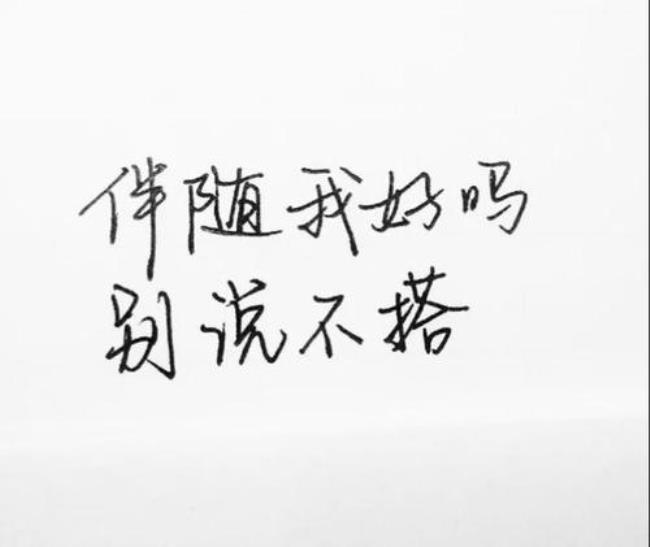 伴随我好吗
别说不搭